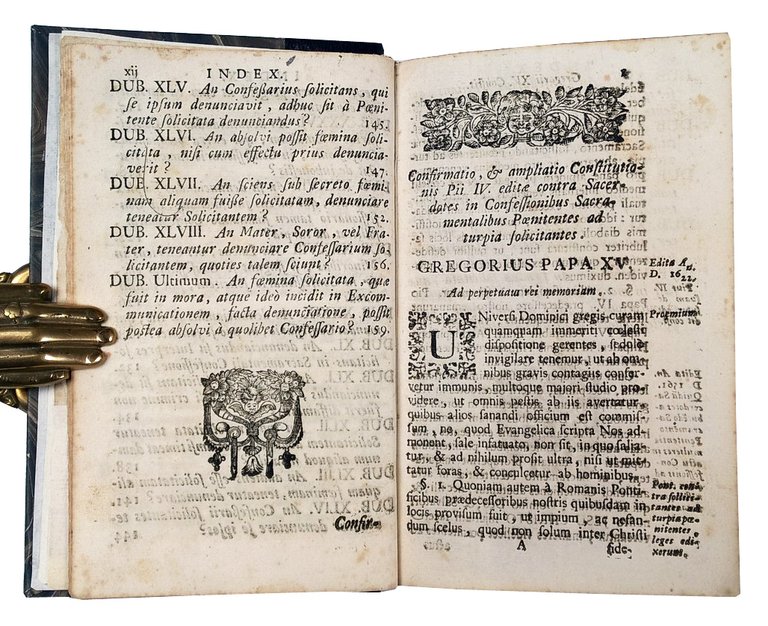 xij INDEX.
DUB. XLV. An Confeßarius solicitans, qui
se ipsum denunciavit, adhuc sit à Pœni
tente solicitata denunciandus? 145.
DUB. XLVI. An absolvi possit fœmina soli
citata, nisi cum effectu prius denuncia
verit? 147.
DUB. XLVII. An sciens sub secreto fœmi
nam aliquam fuiße solicitatam, denunciare
teneatur Solicitantem? 152.
DUB. XLVIII. An Mater, Soror, vel Fra
ter, teneantur denunciare Confessarium so
licitantem, quoties talem sciunt? 156.
DUB. Ultimum. An fœmina solicitata, quæ
fuit in mora, atque ideo incidit in Excom
municationem, facta denunciatione, possit
postea absolvi à quolibet Confessario? 159.
Confir-
Confirmatio, & ampliatio Constitutio
nis Pii IV. editæ contra Sacer
dotes in Confessionibus Sacra
mentalibus Pœnitentes ad
turpia solicitantes.
GREGORIUS PAPA XV
Edita An.
D. 1622.
Ad perpetuam rei memoriam.
Proemium
UNiversi Dominici gregis curam
quamquam immeriti cœlesti
dispositione gerentes, sedulo
invigilare tenemur, ut ab om
nibus gravis contagiis conser
vetur immunis, multoque majori studio pro
videre, ut omnis pestis ab iis avertatur,
quibus alios sanandi officium est commis
sum, ne, quod Evangelica scripta Nos ad
monent, sale infatuato, non sit, in quo salia
tur, & ad nihilum prosit ultra, nisi ut mit
tatur foras, & conculcetur ab hominibus.
§. 1. Quoniam autem à Romanis Ponti
ficibus prædecessoribus nostris quibusdam in
locis provisum fuit, ut impium, ac nefan
dum scelus, quod non solum inter Christi
A fide-
Pont. con
tra sollici
tantes ad
turpia pœ
nitentes
leges edi
xerunt.